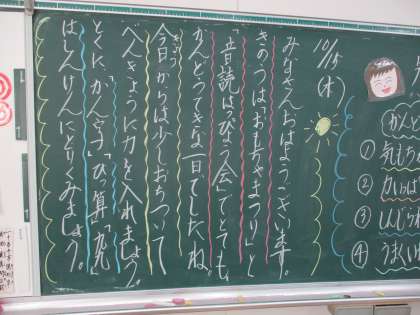 10/15(木)
みなさんおはようございます。
きのうは「おもちゃまつり」と
「音読はっぴょう会」でとても、
かんどうてきな一日でしたね。
今日からは少しおちついて
きょう
べんきょうに力を入れましょう。
とくに「かん字」「ひっ算」「九九」
はしんけんにとりくみましょう。
かんど
① 気もち
②
③ しんじ
④ うまくい